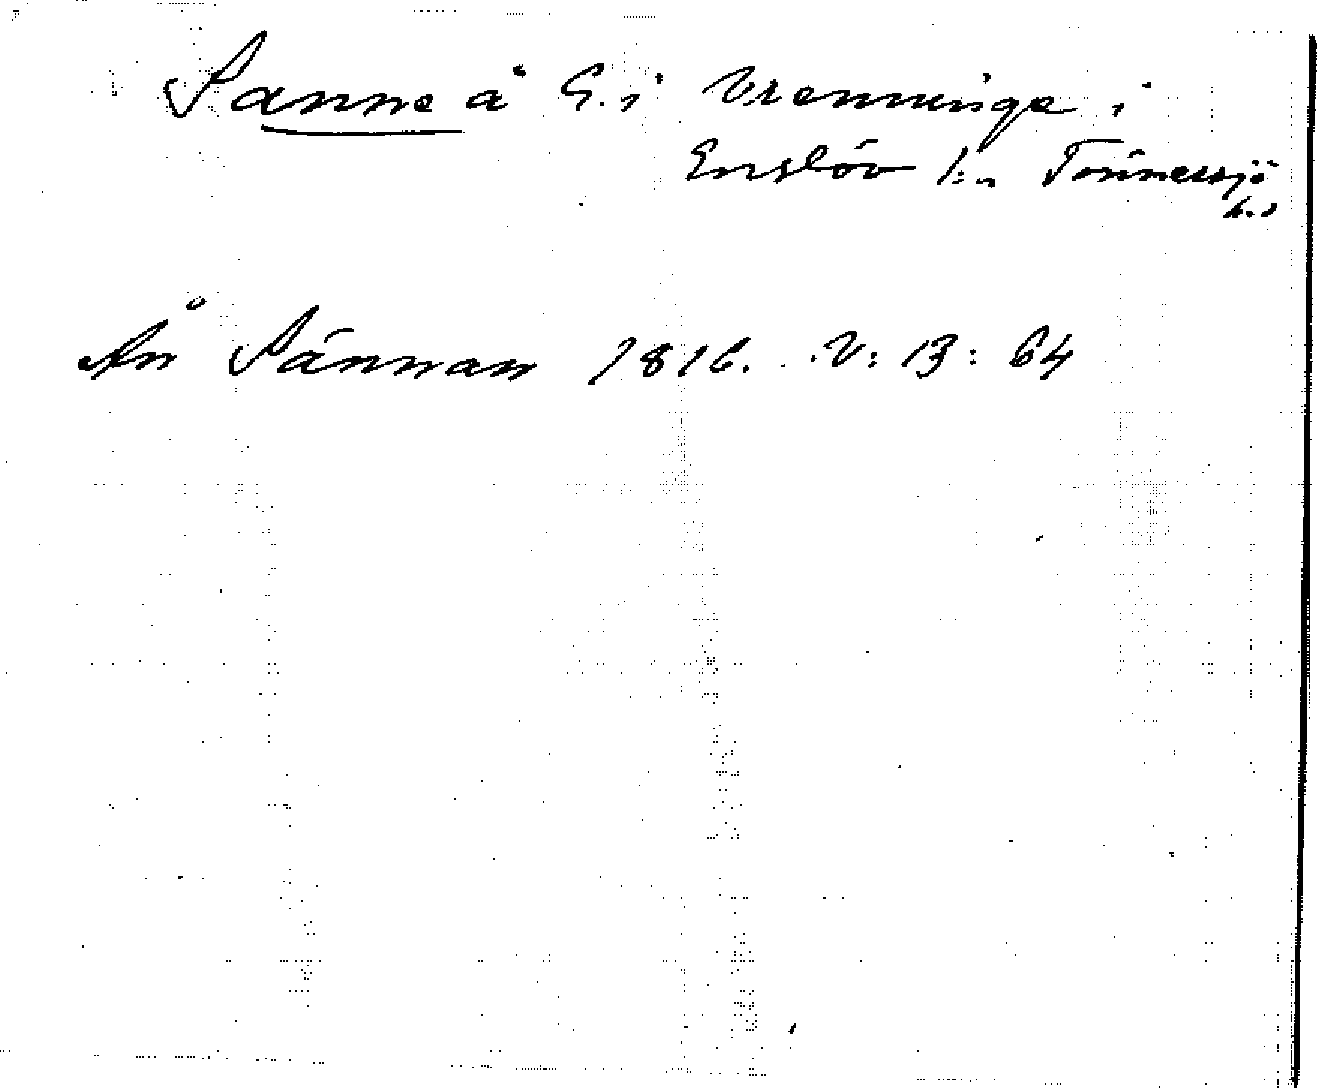 Sanne å G. i Vrenninge i
Enslöv s:n Tönnersjö
h.d
Ån Sännan 1816. V: 13: 64